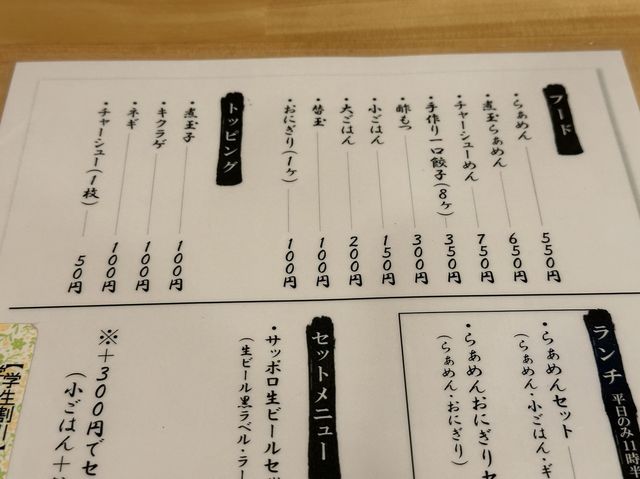 フード
・らぁめん 550円
・煮玉らぁめん 650円
・チャーシューめん 750円
・手作り一口餃子(8ヶ) 350円
・酢もつ 300円
・小ごはん 150円
・大ごはん 200円
・替玉 100円
・おにぎり(1ヶ) 100円
トッピング
・煮玉子 100円
・キクラゲ 100円
・ネギ 100円
・チャーシュー(1枚) 50円
ランチ 平日のみ11時半
・らぁめんセット
(らぁめん・小ごはん・ギ
・らぁめんおにぎりセ
(らぁめん・おにぎり)
セットメニュー
・サッポロ生ビールセ
(生ビール黒ラベル・ラー
※+300円でセ
(小ごはん+
【学生割引】